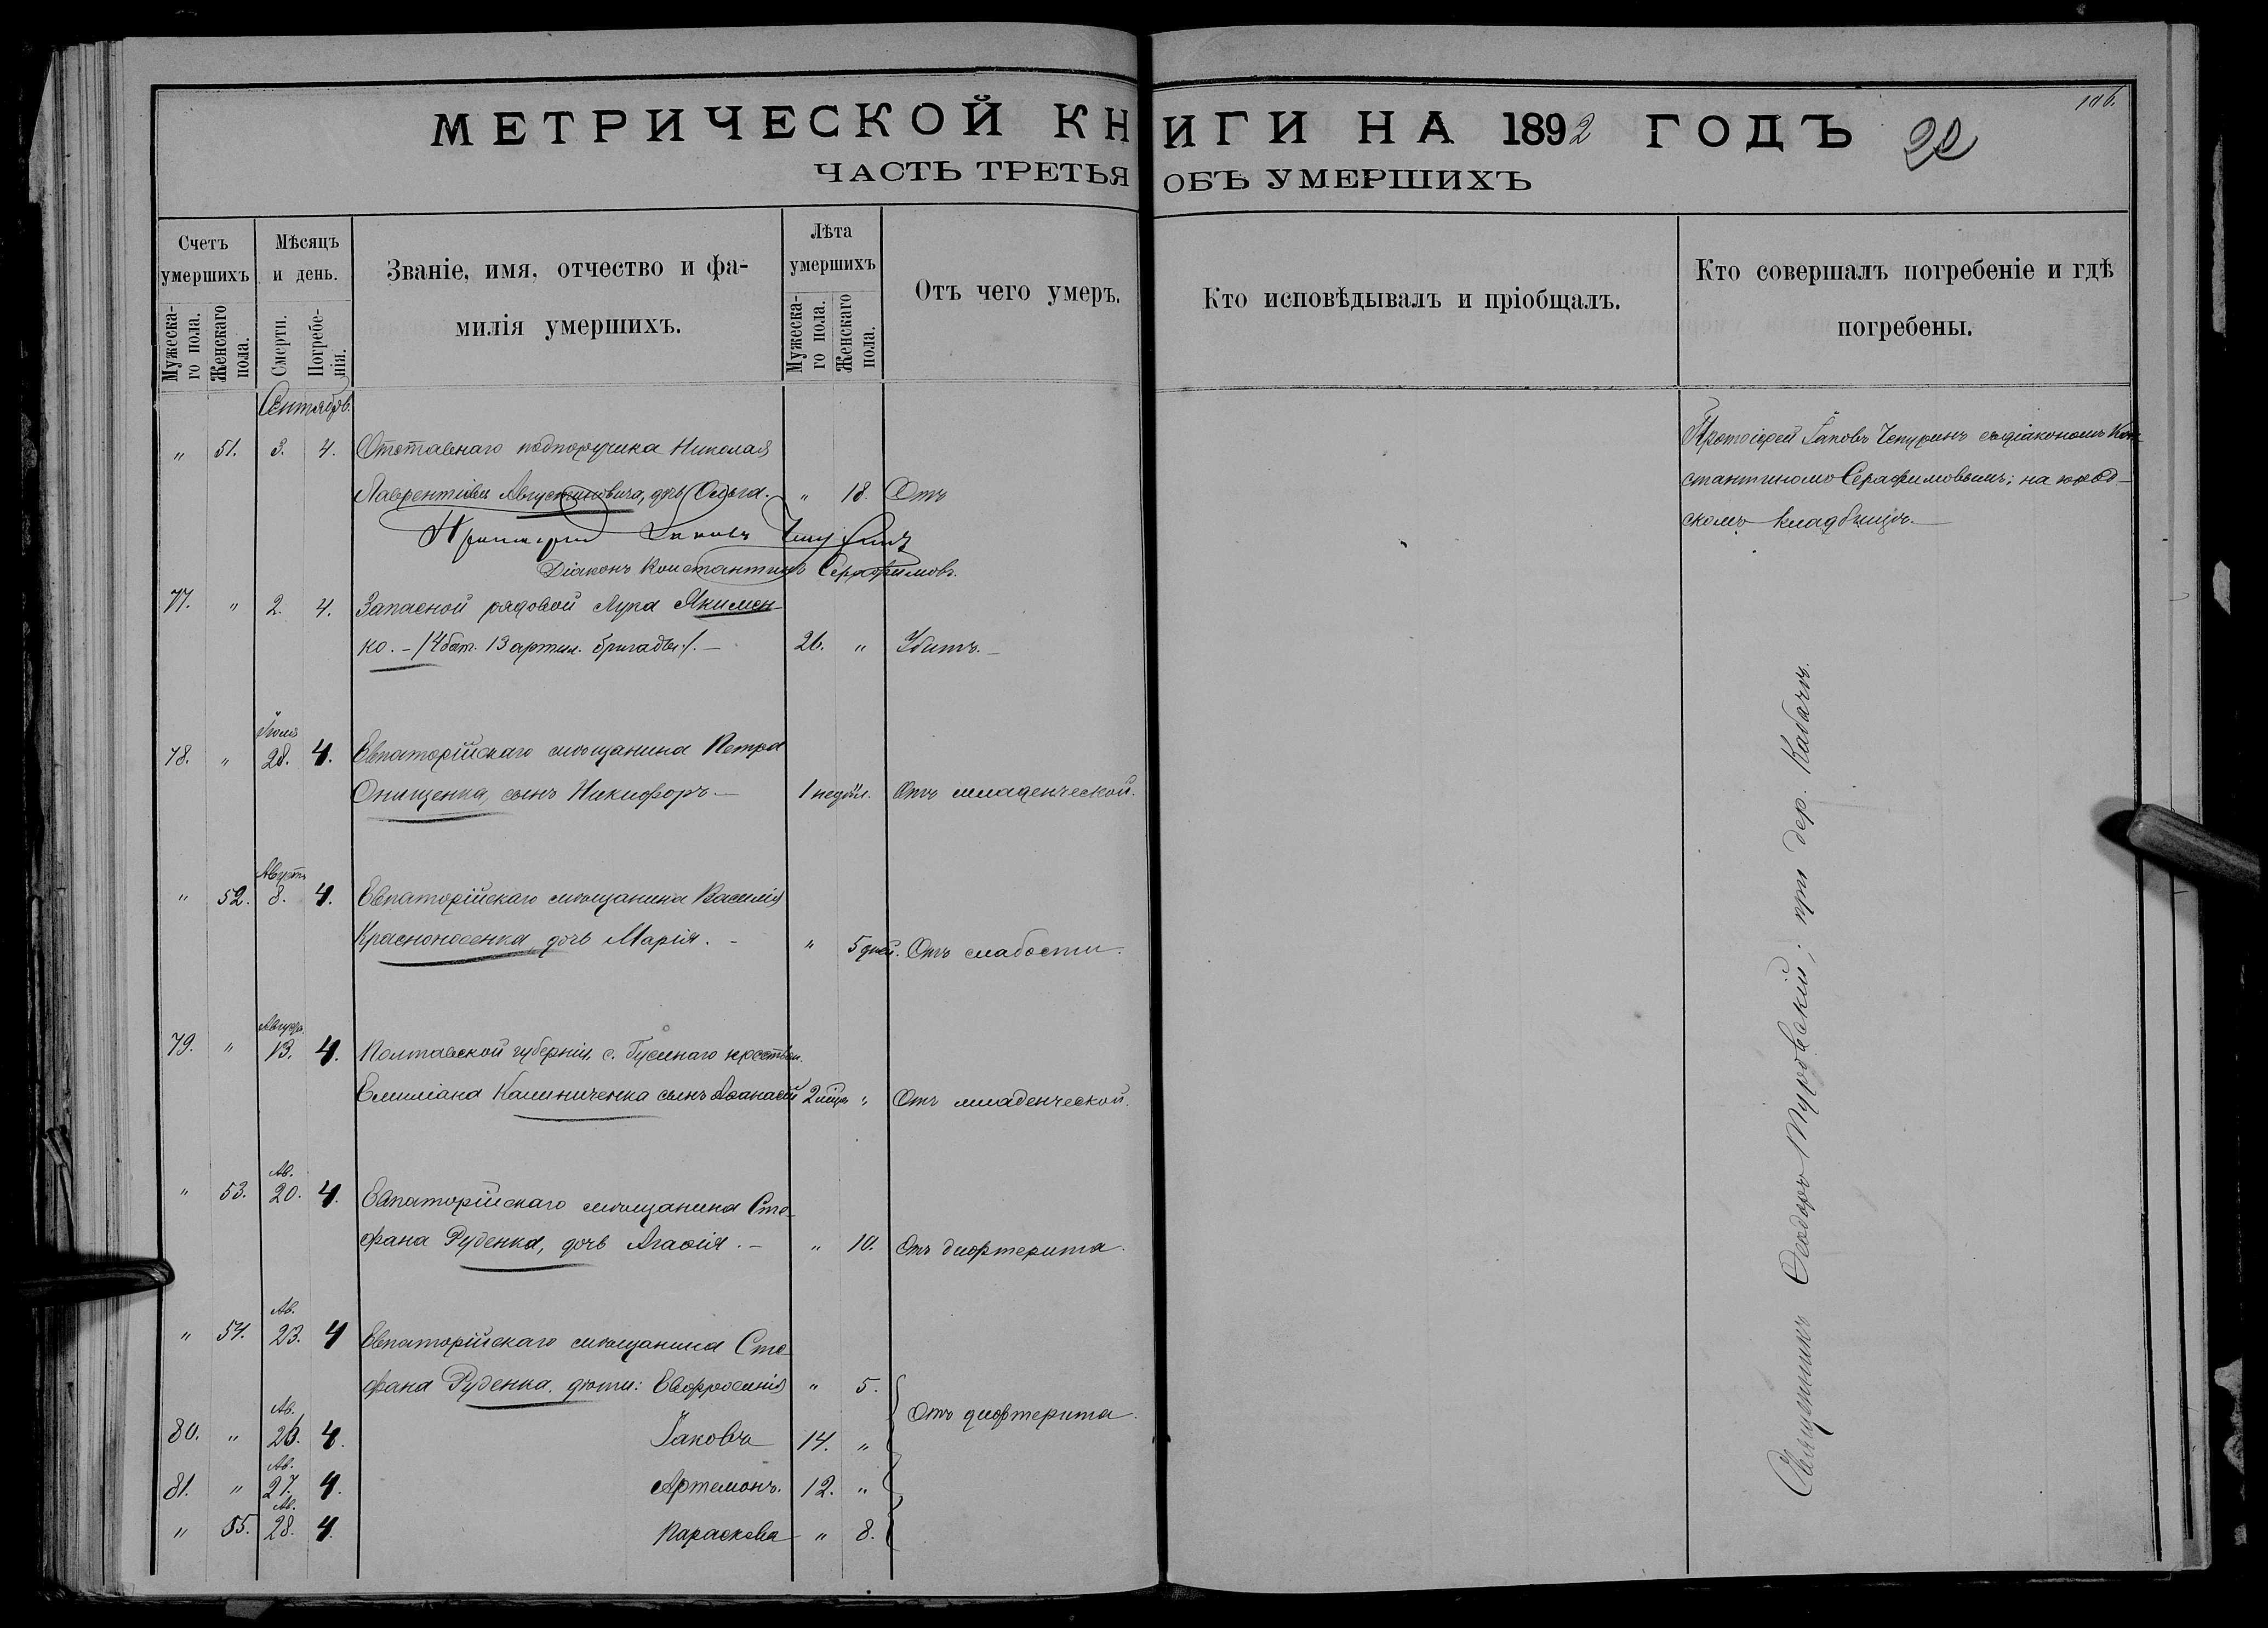 МЕТРИЧЕСКОЙ КНИГИ НА 1892 ГОДЪ
106.
22
ЧАСТЬ ТРЕТЬЯ ОБЪ УМЕРШИХЪ
Счетъ умершихъ
Мѣсяцъ и день.
Званіе, имя, отчество и фа-
милія умершихъ.
Лѣта умершихъ
Отъ чего умеръ.
Кто исповѣдывалъ и пріобщалъ.
Кто совершалъ погребеніе и гдѣ
погребены.
Мужеска-го пола.
Женскаго пола.
Смерти.
Погребе-нія.
Мужеска-го пола.
Женскаго пола.
Сентябрь.
" 51. 3. 4. Отставнаго подпоручика Николая
Лаврентіева Августиновича, дочь Ольга. " 18. Отъ
Протоіерей Іаковъ Чепуринъ съ діакономъ Кон-
стантиномъ Серафимовымъ; на
скомъ кладбищѣ.
Протоіерей Іаковъ Чепуринъ
Діаконъ Константинъ Серафимовъ.
77. " 2. 4. Запасной рядовой Лука Якимен-
ко. - /4 бат. 13 артил. бригады/. - 26. " Убитъ. -
Іюля
78. " 28. 4. Евпаторійскаго мѣщанина Петра
Онищенка, сынъ Никифоръ. - 1 недѣл. Отъ младенческой.
Августъ
" 52. 8. 4. Евпаторійскаго мѣщанина Василія
Красноносенка, дочь Марія. - " 5 дней. Отъ слабости.
Август.
79. " 13. 4. Полтавской губерніи, с. крестьян.
Емиліана Калиниченка сынъ Аѳанасій 2 мѣся. " Отъ младенческой.
Ав.
" 53. 20. 4. Евпаторійскаго мѣщанина Сте-
фана Руденка, дочь Агаѳія. - " 10. Отъ дифтерита.
Ав.
" 54. 23. 4 Евпаторійскаго мѣщанина Сте-
фана Руденка, дѣти: Евфросинія " 5.
Ав.
80. " 26. 4. Іаковъ 14. " Отъ дифтерита.
Ав.
81. " 27. 4. Артемонъ. 12. "
Ав.
" 55. 28. 4. Параскева " 8.
Священникъ Ѳеодоръ Туровскій; при дер.